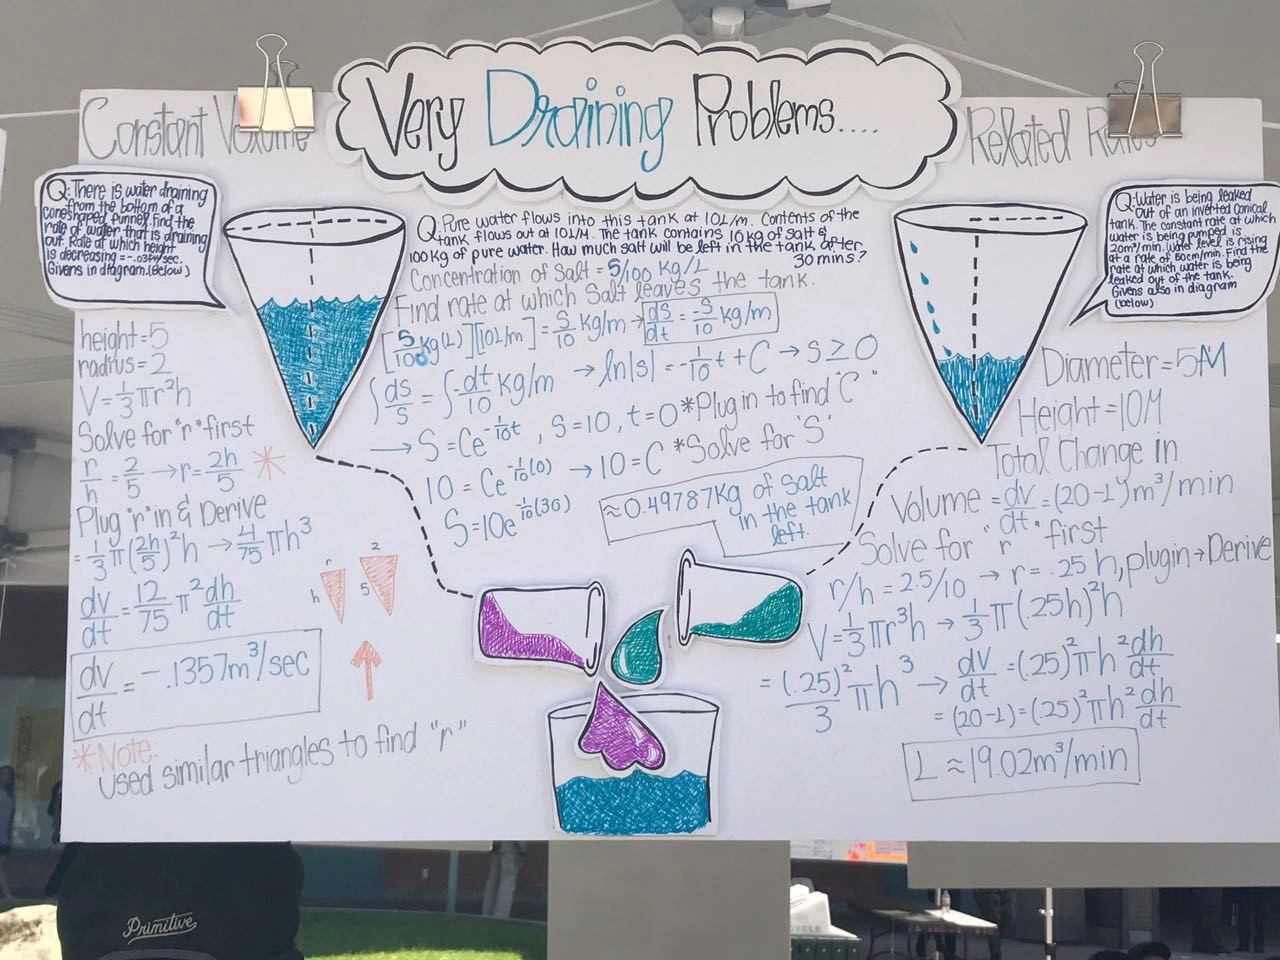 Very Draining Problems....
Constant Volume
Q: There is water draining
from the bottom of a
coneshaped funnel. Find the
rate of water that is draining
out. Rate at which height
is decreasing =
Givens in diagram.(Below)
height=5
radius=2
V=1/3πr²h
Solve for "r" first
r/h = 2/5 → r=2h/5 *
Plug "r" in & Derive
=1/3π(2h/5)²h → 4/75πh³
dv/dt = 12/75 π² dh/dt
dv/dt = -.1357m³/sec
*Note:
used similar triangles to find "r"
r
h
2
5
Q: Pure water flows into this tank at 10L/m. Contents of the
tank flows out at 10L/m. The tank contains 10kg of salt &
100kg of pure water. How much salt will be left in the tank after
30 mins?
Concentration of Salt = S/100 kg/L
Find rate at which Salt leaves the tank.
[S/100 kg(L)][10L/m] = S/10 kg/m → ds/dt = -S/10 kg/m
∫ds/s = ∫-dt/10 kg/m → ln|s| = -1/10t + C → S ≥ 0
→ S=Ce^-1/10t, S=10, t=0 *Plug in to find "C"
10=Ce^-1/10(0) → 10=C *Solve for 'S'
S=10e^-1/10(30)
≈0.49787Kg of Salt
in the tank
left.
Related Rates
Q: Water is being leaked
out of an inverted conical
tank. The constant rate at which
water is being pumped is
20m³/min. Water level is rising
at a rate of 50cm/min. Find the
rate at which water is being
leaked out of the tank.
Givens also in diagram
(below)
Diameter=5M
Height=10M
Total Change in
Volume = dv/dt = (20-L)m³/min
Solve for "r" first
r/h = 2.5/10 → r=.25h, plugin→Derive
V=1/3πr³h → 1/3π(.25h)²h
= (.25)²/3 πh³ → dv/dt = (.25)²πh² dh/dt
= (20-L) = (.25)²πh² dh/dt
L ≈ 19.02m³/min
Primitive